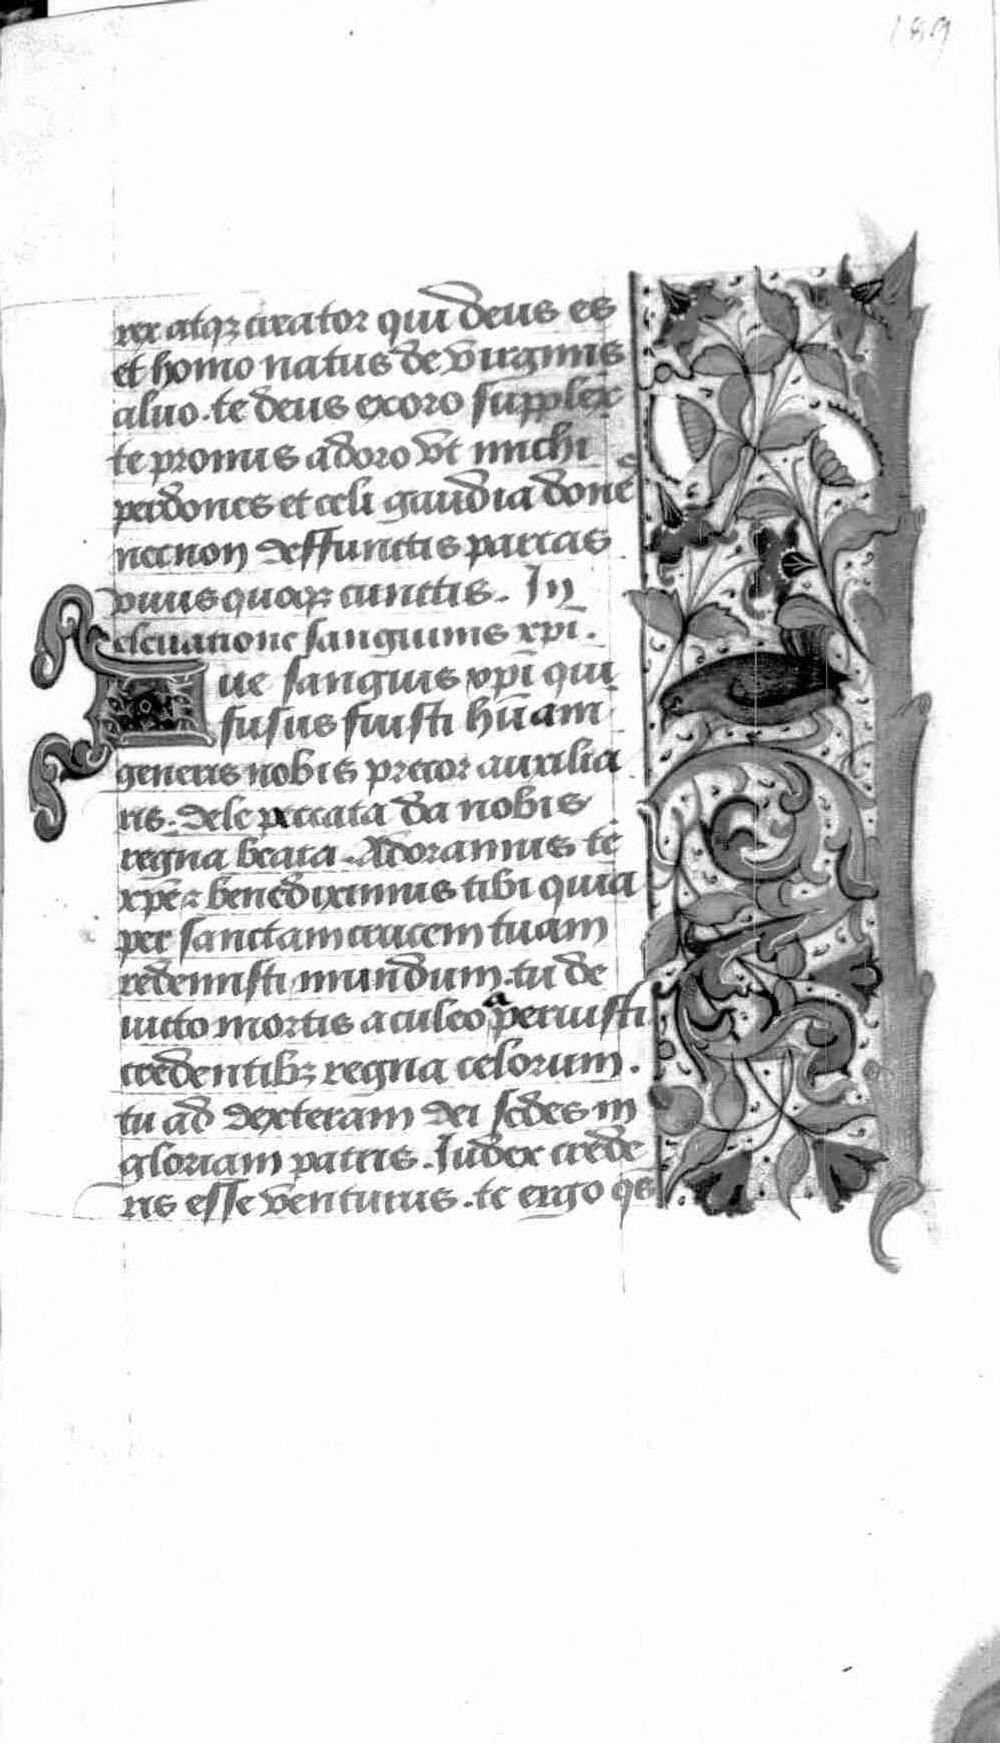 189
rex atqꝫ creator qui deus es
et homo natus de virginis
aluo. te deus exoro supplex
te pronus adoro vt michi
perdones et celi gaudia donē
necnon deffunctis parcas
viuis quoqꝫ cunctis. In
eleuatione sanguinis xp̄i.
Aue sanguis xp̄i qui
fusus fuisti hūam
generis nobis precor auxilia
ris. dele peccata da nobis
regna beata. Adoramus te
xp̄e ⁊ benediximus tibi quia
per sanctam crucem tuam
redemisti mundum. tu de
uicto mortis aculeo aperuisti
credentibꝫ regna celorum.
tu ad dexteram dei sedes in
gloriam patris. Iudex crede
ris esse venturus. te ergo qs̄